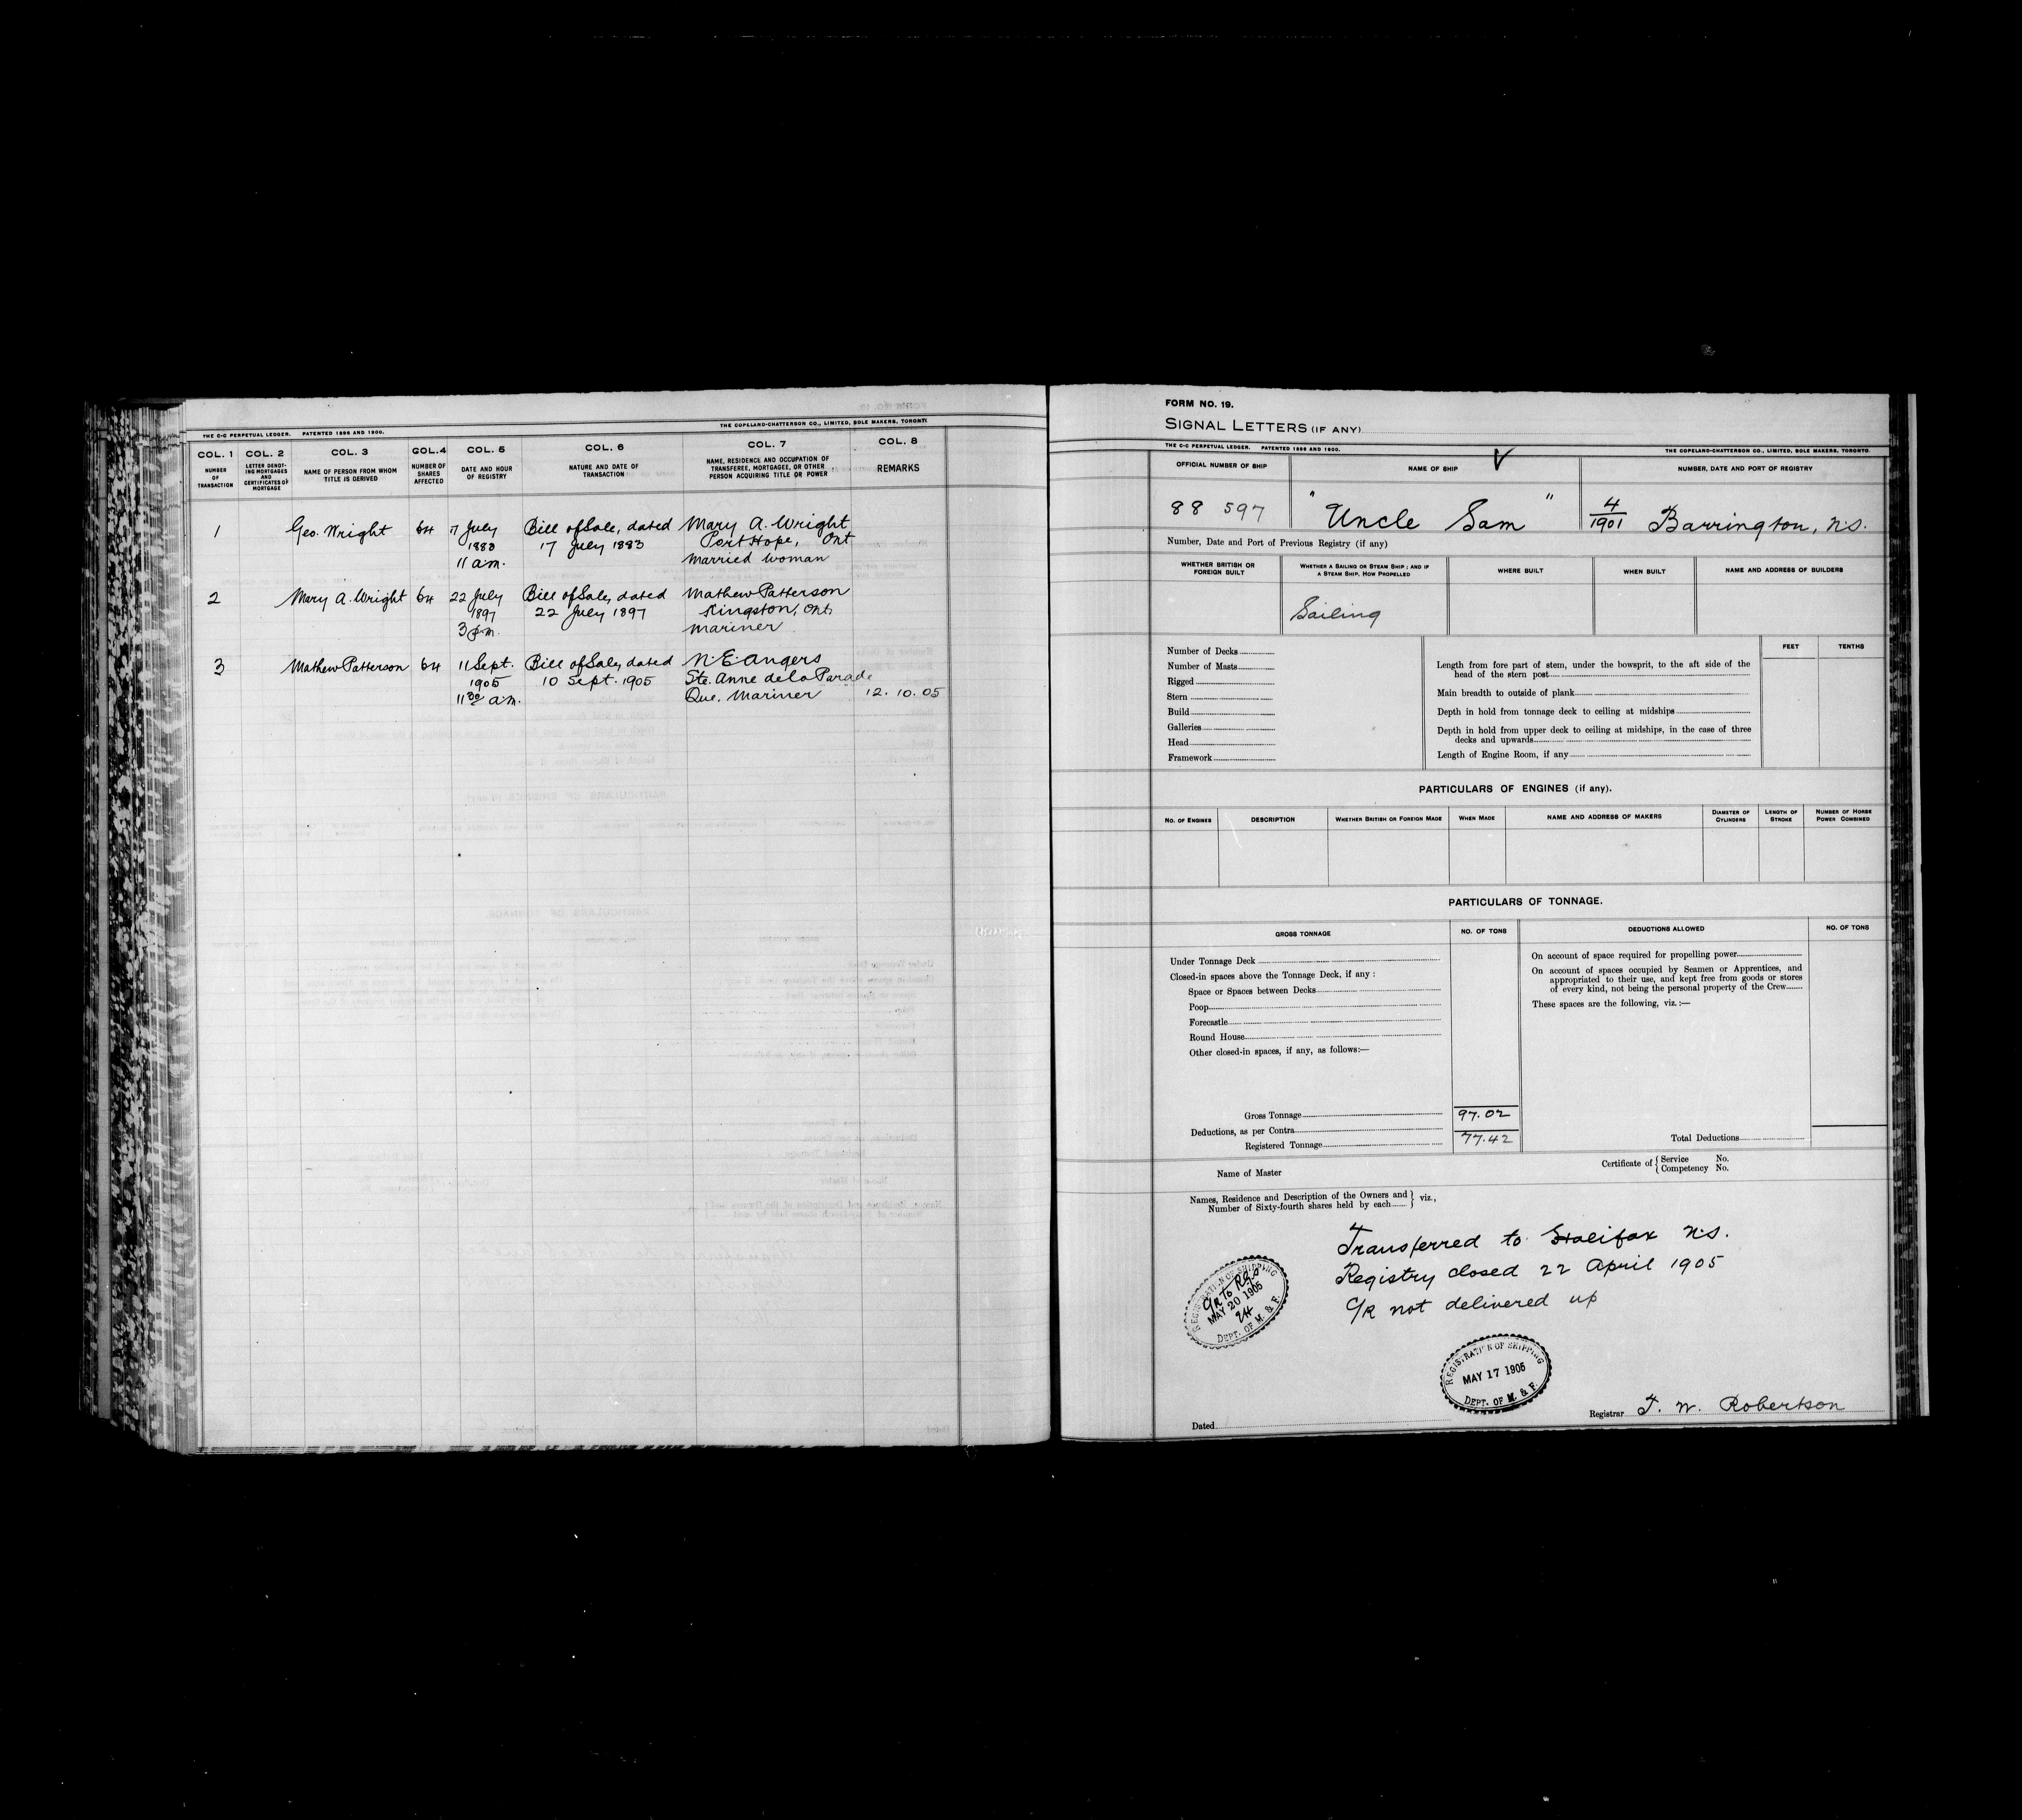 THE C-C PERPETUAL LEDGER. PATENTED 1896 AND 1900. THE COPELAND-CHATTERSON CO., LIMITED, SOLE MAKERS, TORONTO.
COL. 1 COL. 2 COL. 3 COL. 4 COL. 5 COL. 6 COL. 7 COL. 8
NUMBER OF TRANSACTION
LETTER DENOTING MORTGAGES AND CERTIFICATES OF MORTGAGE
NAME OF PERSON FROM WHOM TITLE IS DERIVED
NUMBER OF SHARES AFFECTED
DATE AND HOUR OF REGISTRY
NATURE AND DATE OF TRANSACTION
NAME, RESIDENCE AND OCCUPATION OF TRANSFEREE, MORTGAGEE, OR OTHER PERSON ACQUIRING TITLE OR POWER
REMARKS
1 Geo. Wright 64 17 July Bill of Sale, dated Mary A. Wright
1883 17 July 1883 Port Hope, Ont
11 a.m. Married Woman
2 Mary A. Wright 64 22 July Bill of Sale, dated Mathew Patterson
1897 22 July 1897 Kingston, Ont.
3 p.m. Mariner
3 Mathew Patterson 64 11 Sept. Bill of Sale, dated N. E. Angers
1905 10 Sept. 1905 Ste. Anne de la Parade
11 30 a.m. Que. Mariner 12.10.05
FORM NO. 19.
SIGNAL LETTERS (IF ANY)
THE C-C PERPETUAL LEDGER. PATENTED 1896 AND 1900. THE COPELAND-CHATTERSON CO., LIMITED, SOLE MAKERS, TORONTO.
OFFICIAL NUMBER OF SHIP NAME OF SHIP NUMBER, DATE AND PORT OF REGISTRY
88 597 "Uncle Sam" 4/1901 Barrington, N.S.
Number, Date and Port of Previous Registry (if any)
WHETHER BRITISH OR FOREIGN BUILT
WHETHER A SAILING OR STEAM SHIP; AND IF A STEAM SHIP, HOW PROPELLED
WHERE BUILT
WHEN BUILT
NAME AND ADDRESS OF BUILDERS
Sailing
FEET TENTHS
Number of Decks
Number of Masts
Rigged
Stern
Build
Galleries
Head
Framework
Length from fore part of stem, under the bowsprit, to the aft side of the
head of the stern post
Main breadth to outside of plank
Depth in hold from tonnage deck to ceiling at midships
Depth in hold from upper deck to ceiling at midships, in the case of three
decks and upwards
Length of Engine Room, if any
PARTICULARS OF ENGINES (if any).
NO. OF ENGINES
DESCRIPTION
WHETHER BRITISH OR FOREIGN MADE
WHEN MADE
NAME AND ADDRESS OF MAKERS
DIAMETER OF CYLINDERS
LENGTH OF STROKE
NUMBER OF HORSE POWER COMBINED
PARTICULARS OF TONNAGE.
GROSS TONNAGE NO. OF TONS DEDUCTIONS ALLOWED NO. OF TONS
Under Tonnage Deck
Closed-in spaces above the Tonnage Deck, if any:
Space or Spaces between Decks
Poop
Forecastle
Round House
Other closed-in spaces, if any, as follows:—
On account of space required for propelling power
On account of spaces occupied by Seamen or Apprentices, and
appropriated to their use, and kept free from goods or stores
of every kind, not being the personal property of the Crew
These spaces are the following, viz.:—
Gross Tonnage 97.02
Deductions, as per Contra
Registered Tonnage 77.42
Total Deductions
Name of Master
Certificate of { Service No.
Competency No.
Names, Residence and Description of the Owners and } viz.,
Number of Sixty-fourth shares held by each
Transferred to Halifax N.S.
Registry closed 22 April 1905
C/R not delivered up
REGISTRATION OF SHIPPING
C/R To RGS
MAY 20 1905
DEPT. OF M. & F.
REGISTRATION OF SHIPPING
MAY 17 1905
DEPT. OF M. & F.
Dated
Registrar F. W. Robertson